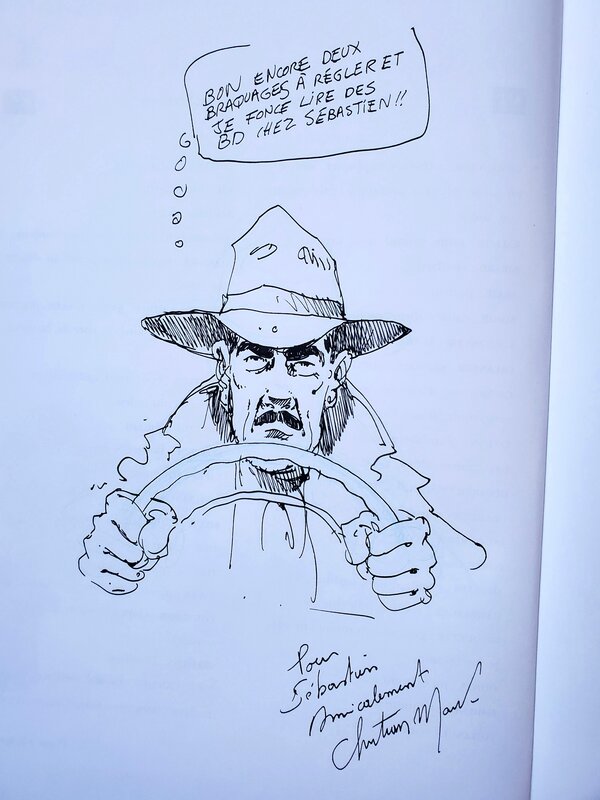 BON ENCORE DEUX
BRAQUAGES À RÉGLER ET
JE FONCE LIRE DES
BD CHEZ SÉBASTIEN!!
Pour
Sébastien
Amicalement
Christian